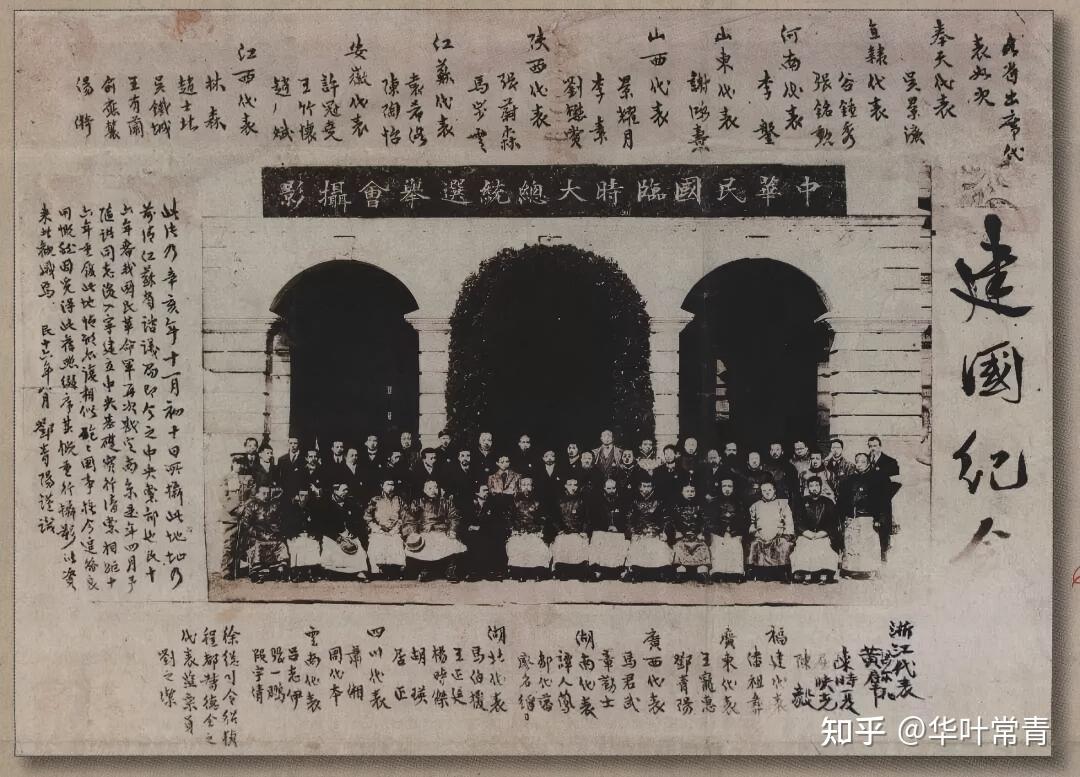 各省出席代
表如次
奉天代表
吳景濂
直隸代表
谷鍾秀
張銘勳
河南代表
李鎜
山東代表
謝鴻燾
山西代表
景耀月
李素
劉懋賞
陝西代表
張蔚森
馬步雲
江蘇代表
袁希洛
陳陶怡
安徽代表
許冠堯
王竹懷
趙斌
江西代表
林森
趙士北
吳鐵城
王有蘭
俞應麓
湯漪
中華民國臨時大總統選舉會攝影
建國紀
此片乃辛亥年十一月初十日所攝此地址乃
前清江蘇省諮議局即今之中央黨部也民十
六年春我國民革命軍再次戡定南京是年四月予
隨諸同志後入寧建立中央基礎實行清黨相距十
六年重履此地情形相似國事往今追昔良
用慨然因覓得此舊照綴序其概重行攝影以資
來者觀感焉 民十六年八月 鄧青陽謹識
浙江代表
黃羣
陳時夏
屈映光
陳毅
福建代表
潘祖彝
廣東代表
王寵惠
鄧青陽
廣西代表
馬君武
章勤士
湖南代表
譚人鳳
鄒代藩
廖名縉
湖北代表
馬伯援
王正廷
楊時傑
胡瑛
居正
四川代表
蕭湘
周代本
雲南代表
呂志伊
張一鵬
段宇清
徐總司令紹楨
程都督德全之
代表
劉之潔
知乎 @华叶常青